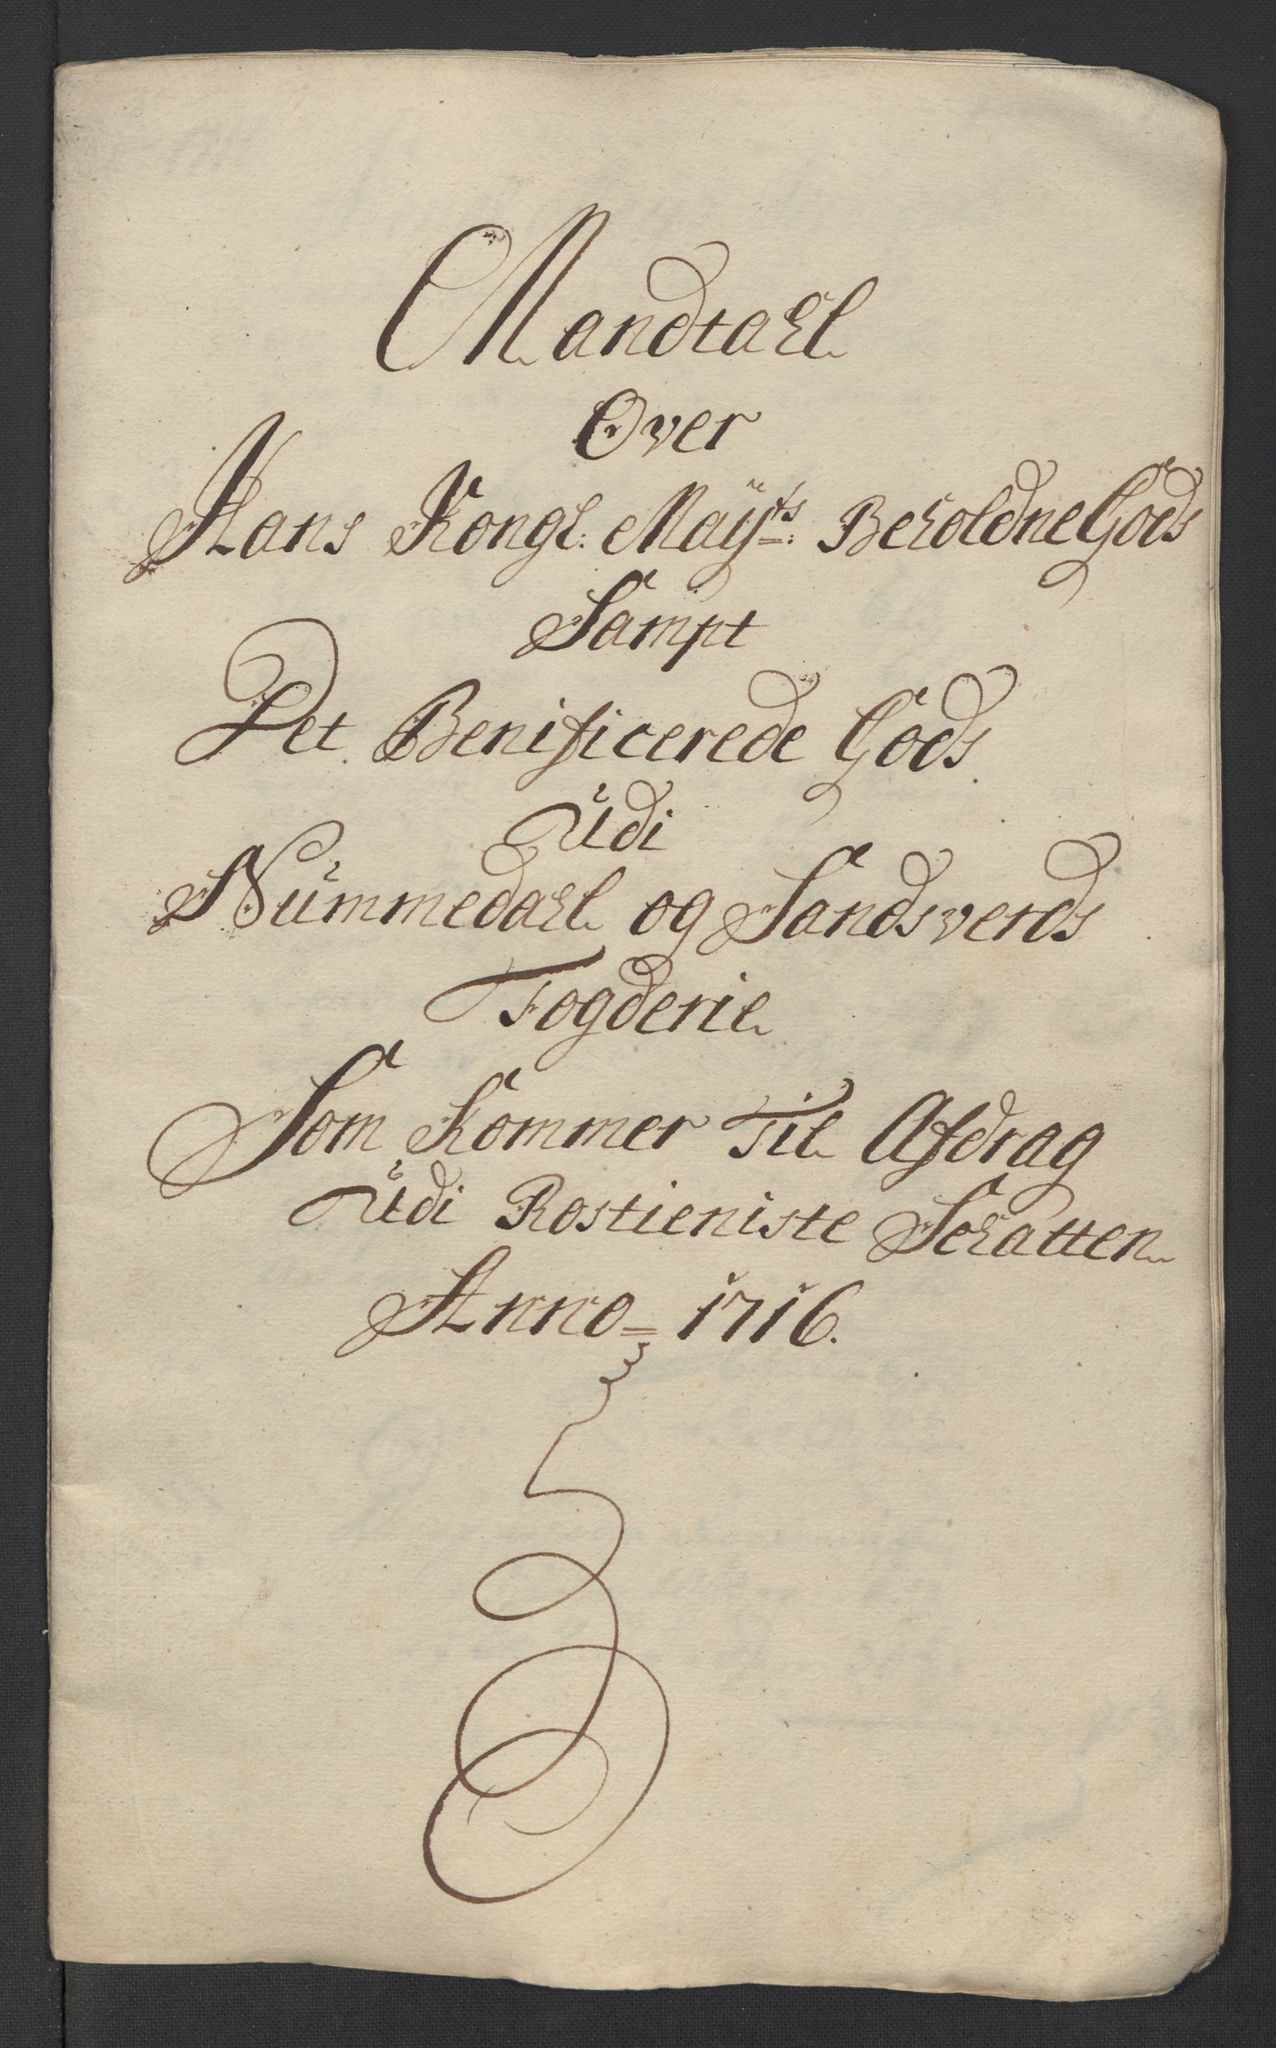 Mandtahl
Over
Hans Kongl: Maÿts: Beholdne Gods
Sampt
Det Benificerede Gods
Udi
Nummedahl og Sandsverds
Fogderie
Som Kommer Til Afdrag
Udi Rostieniste Schatten
Anno 1716.